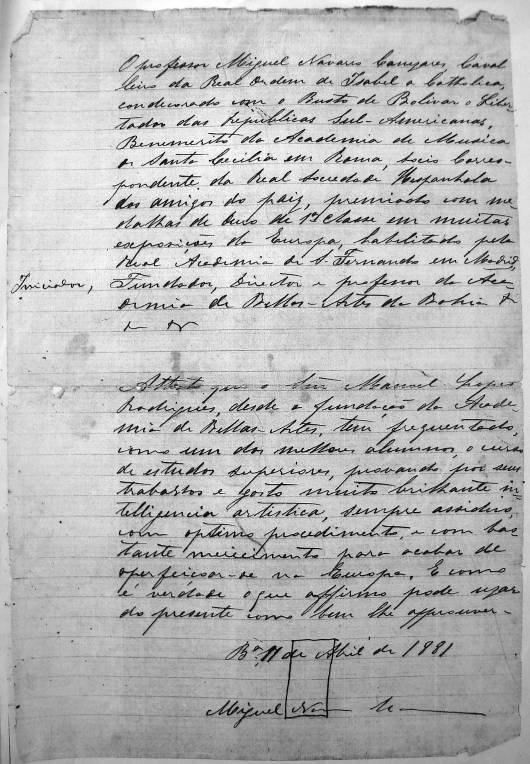 O professor Miguel Navarro Canyzares, Caval
leiro da Real Ordem de Isabel a Catholica
condecorado com o Busto de Bolivar o Liber
tador das republicas Sul-Americanas,
Benemerito da Academia de Musica
de Santa Cecilia em Roma, socio Corres-
pondente da Real Sociedade Hespanhola
dos amigos do paiz, premiado com me
dalhas de ouro de 1ª classe em muitas
exposições da Europa, habilitado pela
Real Academia de S. Fernando em Madrid,
Iniciador, Fundador, Director e professor da Aca-
demia de Bellas-Artes da Bahia &
Attesto que o Snr Manoel Lopes
Rodrigues, desde a fundação da Acade-
mia de Bellas-Artes, tem frequentado,
como um dos melhores alumnos, o curso
de estudos superiores, provando por seus
trabalhos e gosto muito brilhante in
telligencia artistica, sempre assiduo,
com optimo procedimento, e com bas
tante merecimento para acabar de
aperfeiçoar-se na Europa. E como
é verdade o que affirmo pode usar
do presente como bem lhe approuver-
Bª 11 de Abril de 1881
Miguel